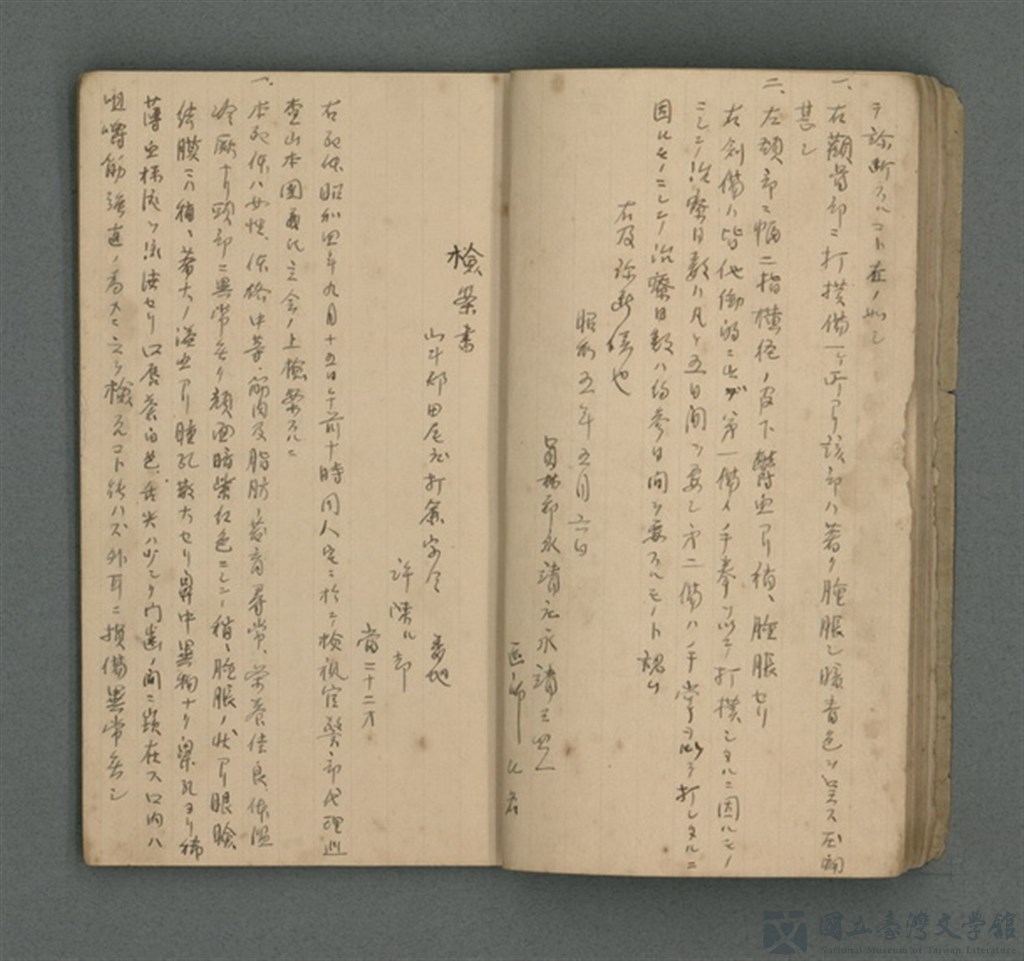 ヲ診断スルコト左ノ如シ
一、右顴骨部ニ打撲傷一ヶ所アリ該部ハ著シク腫脹シ暗青色ヲ呈ス圧痛
甚シ
二、左頬部ニ幅二指横径ノ皮下鬱血アリ稍々腫脹セリ
右創傷ハ皆他働的ニ出デ第一傷ハ手拳ヲ以テ打撲シタルニ因ルモノ
ニシテ治療日数ハ凡ソ五日間ヲ要シ第二傷ハ手掌ヲ以テ打シタルニ
因ルモノニシテ治療日数ハ約参日間ヲ要スルモノト認ム
右及診断候也
昭和五年五月六日
員林郡永靖庄永靖
医師
検案書
北斗郡田尾庄打簾字
番地
許陳
当二十二才
右死体昭和四年九月十五日午前十時同人宅ニ於テ検視官警部代理巡
査山本 立会ノ上検案スルニ
一、本死体ハ女性、体格中等、筋肉及脂肪ノ発育尋常、栄養佳良、体温
冷厥ナリ頭部ニ異常無ク顔面暗紫紅色ニシテ稍々腫脹ノ状アリ眼瞼
結膜ニハ稍々著大ノ溢血アリ瞳孔散大セリ鼻中異物ナク鼻孔ヨリ稀
薄血様液ヲ流洩セリ口唇蒼白色、舌尖ハ少シク門歯ノ間ニ嵌在ス口内ハ
咀嚼筋強直ノ為メニ之ヲ検スルコト能ハズ外耳ニ損傷異常無シ
國立臺灣文學館
National Museum of Taiwan Literature